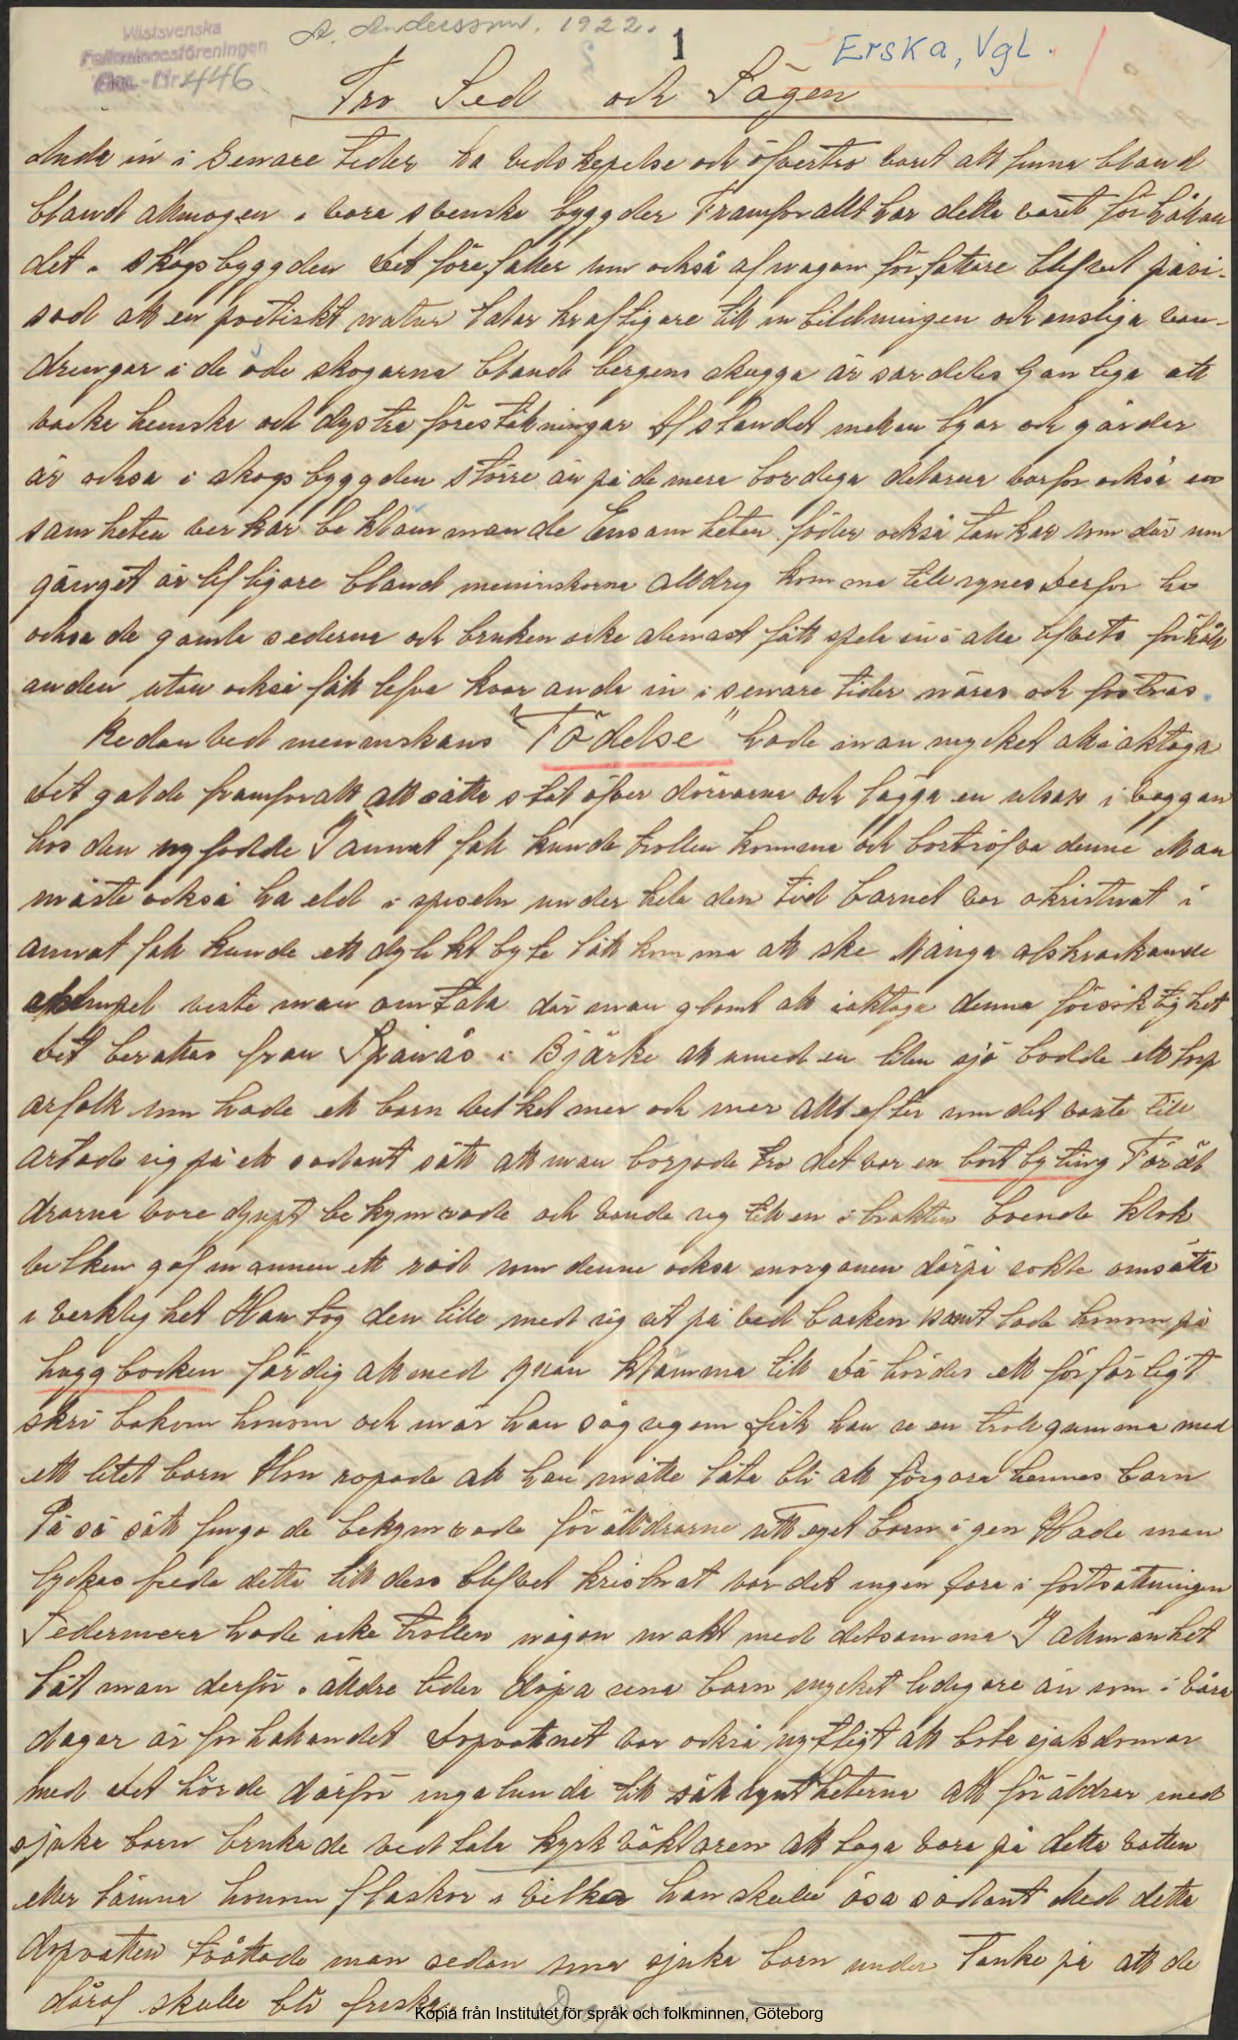 Västsvenska
Folkminnesföreningen
Acc.-Nr 446
A. Andersson. 1922.
1
Erska, Vgl.
Tro Sed och Sägen
Ända in i Senare tider ha vidskepelse och öfvertro varit att finna bland
blandt allmogen i vora svenska byggder Framforallt har detta varit förhållan
det i skogsbyggden Det förefaller som också af nogon författare blifvet påvi-
sad att en poetiskt natur talar kraftigare till inbildningen och ensliga van-
dringar i de öde skogarna blandt bergens skugga är sardeles Janlega att
vacka hemska och dystra föreställningar Afståndet mellan byar och gårder
är ochsa i skogsbyggden större än på de mera bordiga delarna varfor också en
samheten verkar beklämmande Ensamheten föder också tankar som där um
gänget är lifligare bland menniskorna alldrig komma till synes Derfor ha
ochsa de gamla sederna och bruken icke alenast fått spela in i alla lifvets förhåll
anden utan också fått lefva kvar anda in i senare tider näras och fostras.
Redan ved menniskans "Födelse" hade man mycket att iakttaga
Det galde framforallt att sätta stål öfver dörrarna och lägga en ulsax i vaggan
hos den nyfödde I annat fall kunde trollen komma och bortröfva denne Man
måste också ha eld i speseln under hela den tid barnet var okristnat i
annat fall kunde ett dylikt byte lätt komma att ske Många afskrackande
exempel veste man omtala där man glömt att iakttaga denna försiktighet
Det berattas från Spånäs i Bjärke att amed en liten sjö bodde ett torp
arfolk som hade ett barn velket mer och mer allt efter som det vaxte till
artade sig på ett sodant sätt att man borjade tro det var en bortbyting Föräl
drarna vore djupt bekymrade och vande sig till en i trakten boende klok
velken gaf mannen ett råd som denne också morgonen därpå sokte omsätta
i verklighet Han tog den lille med sig ut på vedbacken samt lade honom på
huggbocken färdig att med yxan klämma till Då hördes ett förfärligt
skri bakom honom och när han såg sig om fick han se en trollgumma med
ett litet barn Hon ropade att han måtte låta bli att förgöra hennes barn
På så sätt fingo de bekymrade föräldrarne sitt eget barn igen Hade man
lyckas freda detta till dess blifvet kristnat var det ingen fara i fortsattningen
Sedermera hade icke trollen någon makt med detsamma I allmänhet
lät man derför i älldre tider döpa sina barn mycket tidigare än som i våra
dagar är forhallandet Dopvatnet var också nyttigt att bota sjukdomar
med Det hörde därför ingalunda till sällsyntheterna att föräldrar med
sjuka barn brukade vedtala kyrkväktaren att taga vara på detta vatten
eller lämna honom flaskor i vilka han skulle ösa sådant Med detta
dopvatten tvättade man sedan sina sjuka barn under Tanke på att de
däraf skulle bli friska.
Kopia från Institutet för språk och folkminnen, Göteborg